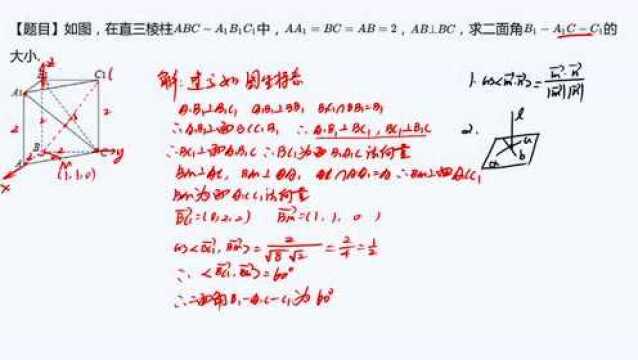 【题目】如图，在直三棱柱ABC－A₁B₁C₁中，AA₁=BC=AB=2，AB⊥BC，求二面角B₁－A₁C－C₁的
大小.
解: 建立如图坐标系
A₁B₁⊥B₁C₁ A₁B₁⊥BB₁ B₁C₁∩BB₁=B₁
∴A₁B₁⊥面BCC₁B₁ ∴A₁B₁⊥BC₁, BC₁⊥B₁C
∴BC₁⊥面A₁B₁C ∴BC₁为面B₁A₁C法向量
BM⊥AC, BM⊥AA₁, AC∩AA₁=A ∴BM⊥面A₁CC₁
BM为面A₁CC₁法向量
BC₁=(0,2,2) BM=(1,1,0)
cos<BC₁,BM>=2/√8√2=2/4=1/2
∴<BC₁,BM>=60°
∴二面角B₁-A₁C-C₁为60°
1. cos<m,n>=m·n/|m||n|
2. l
a b
A₁ C₁
2 2
A B C y
x M
(1,1,0)